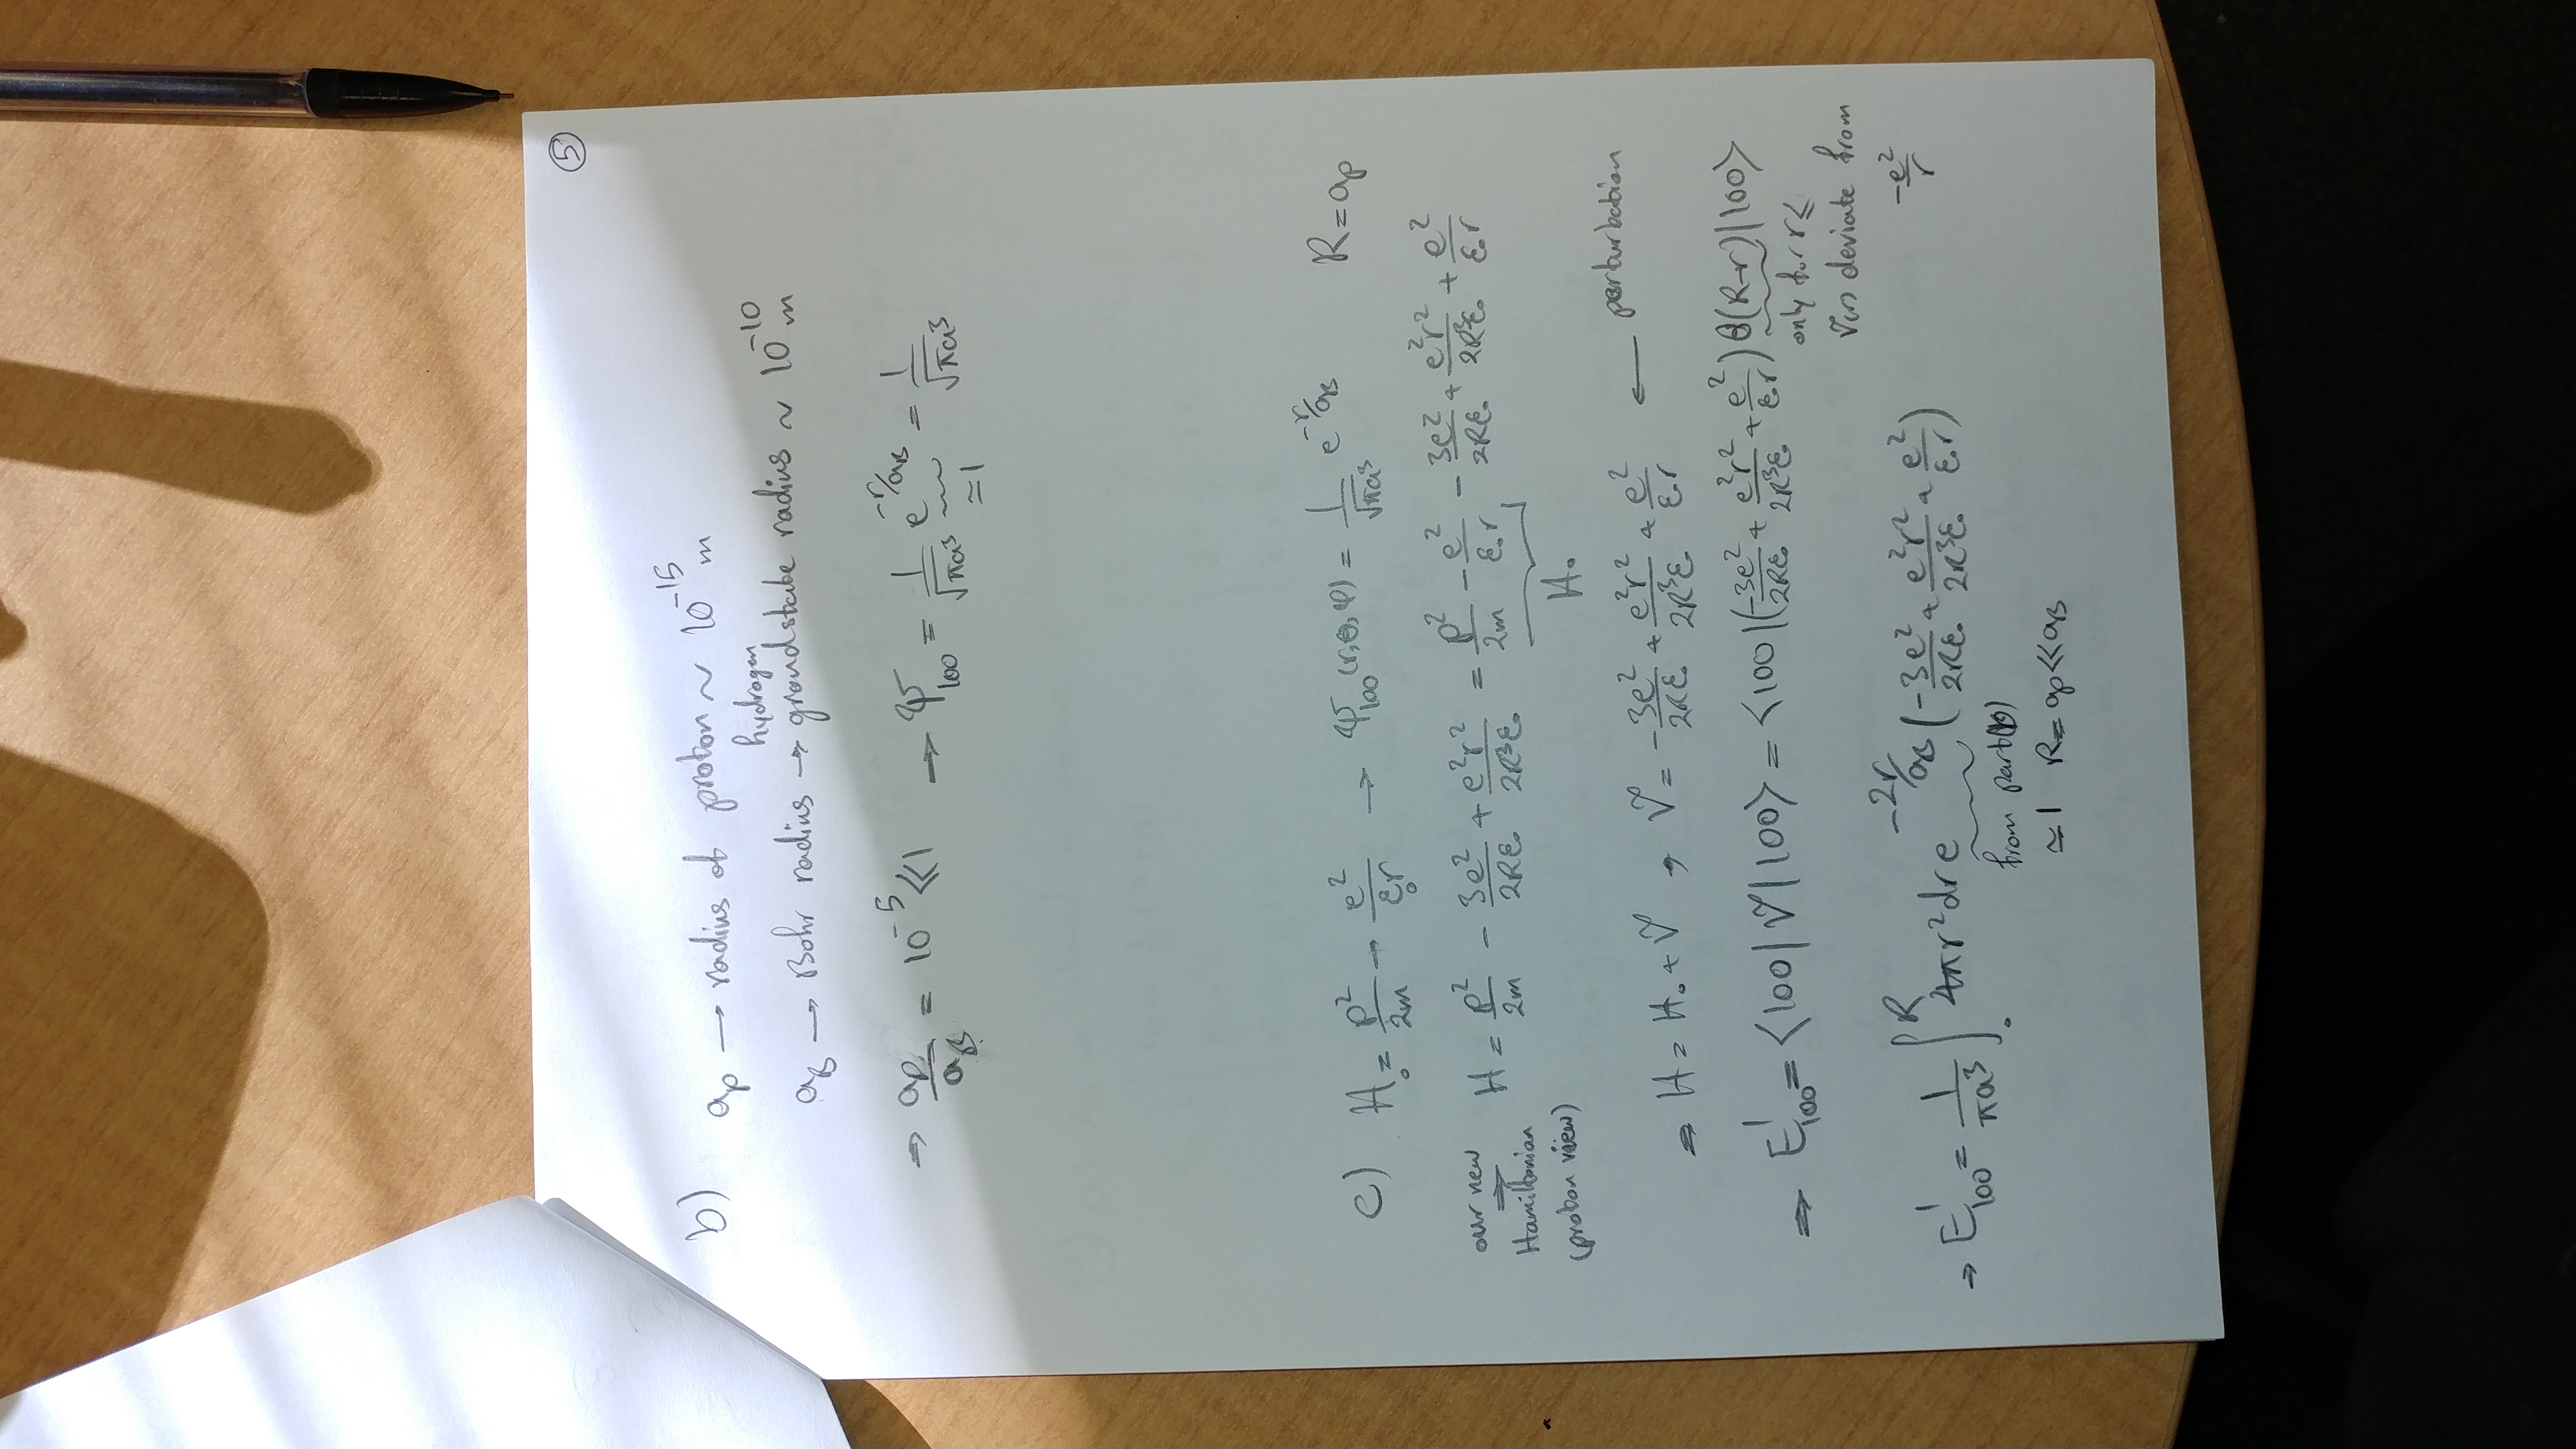 ⑤
b) a_p → radius of proton ~ 10^-15 m
hydrogen
a_B → Bohr radius → groundstate radius ~ 10^-10 m
⇒ a_p/a_B = 10^-5 ≪ 1 → Ψ_100 = 1/√(πa³) e^(-r/a_B) = 1/√(πa³)
≃ 1
c) H_0 = p²/2m - e²/ε_0r → Ψ_100(r,θ,φ) = 1/√(πa³) e^(-r/a_B) R = a_p
our new ⇒ Hamiltonian (proton view) H = p²/2m - 3e²/2Rε_0 + e²r²/2R³ε_0 = p²/2m - e²/ε_0r - 3e²/2Rε_0 + e²r²/2R³ε_0 + e²/ε_0r
H_0
⇒ H = H_0 + Ṽ , Ṽ = -3e²/2Rε_0 + e²r²/2R³ε_0 + e²/ε_0r ← perturbation
⇒ E¹_100 = ⟨100|Ṽ|100⟩ = ⟨100|(-3e²/2Rε_0 + e²r²/2R³ε_0 + e²/ε_0r) θ(R-r)|100⟩
only for r ≤
V(r) deviate from
-e²/r
⇒ E¹_100 = 1/πa³ ∫_0^R 4πr² dr e^(-2r/a_B) (-3e²/2Rε_0 + e²r²/2R³ε_0 + e²/ε_0r)
from part (b)
≃ 1 R = a_p ≪ a_B